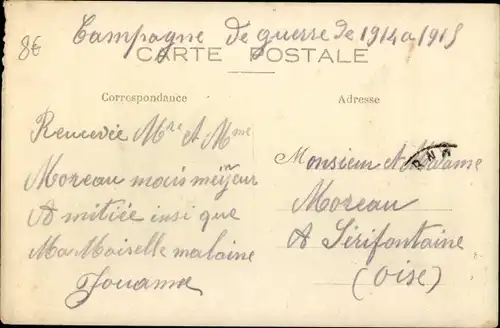 8€
Campagne de guerre de 1914 a 1915
CARTE POSTALE
Correspondance
Adresse
Remercie Mre et Mme
Moreau mais meiyeur
Amitiée insi que
Ma Moiselle malaine
Jouanne
Monsieur et Madame
Moreau
A Sérifontaine
(Oise)